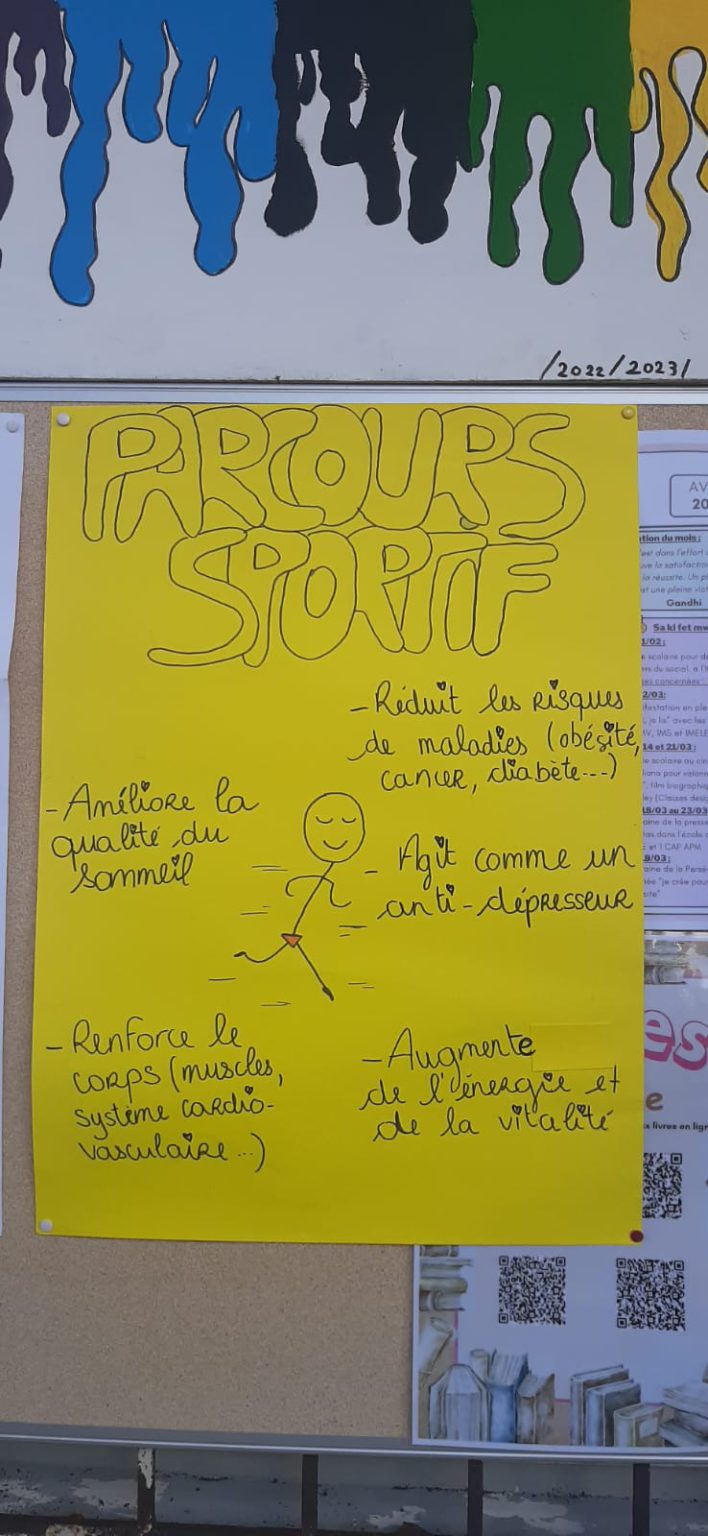 /2022/2023/
PARCOURS
SPORTIF
- Réduit les risques
de maladies (obésité,
cancer, diabète...)
- Améliore la
qualité du
sommeil
- Agit comme un
anti-dépresseur
- Renforce le
corps (muscles,
système cardio-
vasculaire...)
- Augmente
de l'énergie et
de la vitalité
AV
20
tion du mois :
est dans l'effort
la réussite. Un pl
Gandhi
Sa ki fet mw
1/02 :
scolaire pour d
en du social, à l'
es concernées
2/03:
ifestation en ple
, je lis" avec les
IV, 1MS et 1MELE
14 et 21/03 :
e scolaire au cin
liana pour vision
", film biographiq
ley (Classes dési
18/03 au 23/03
aine de la presse
las dans l'école
E et 1 CAP APM
9/03 :
aine de la Persé
née "je crée pour
site"
es
e
x livres en lign